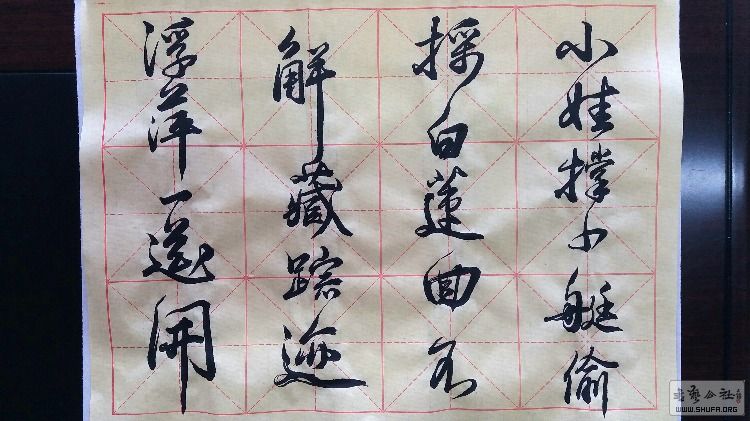 小娃撑小艇偷
採白蓮回不
解藏踪迹
浮萍一道開
書藝公社
WWW.SHUFA.ORG